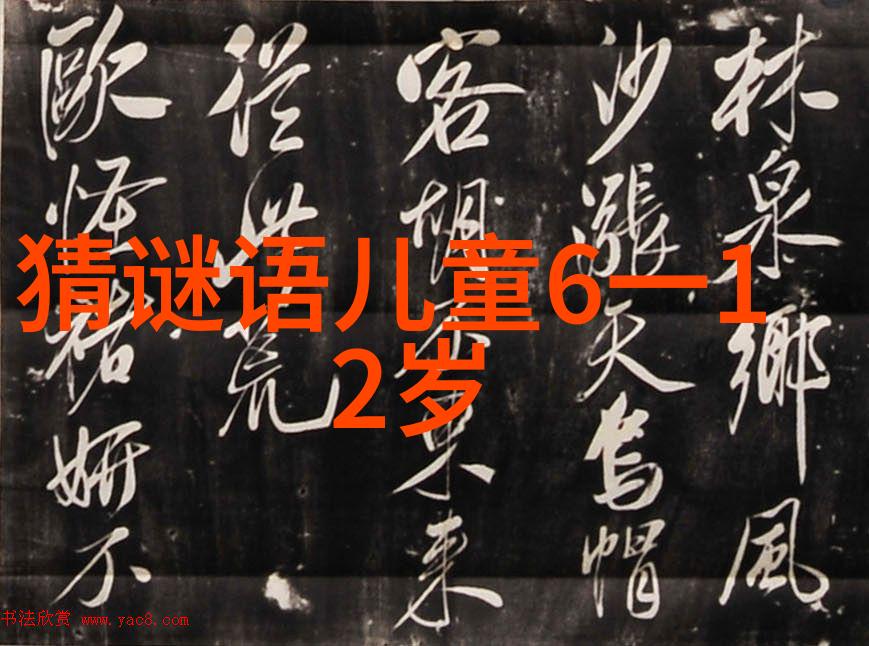 林泉鄉風
沙漲天烏帽
客胡不東來
從荒
歐怪褚妍不
猜谜语儿童6一1
2岁
书法欣赏 www.yac8.com